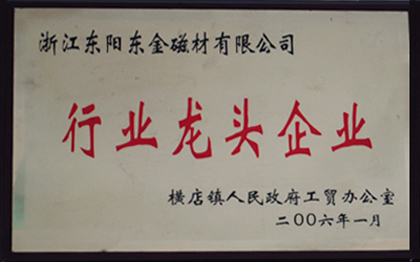 浙江东阳东金磁材有限公司
行业龙头企业
横店镇人民政府工贸办公室
二〇〇六年一月